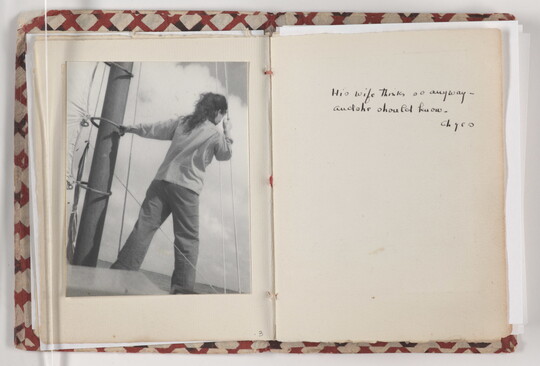 His wife thinks so anyway -
and she should know -
3